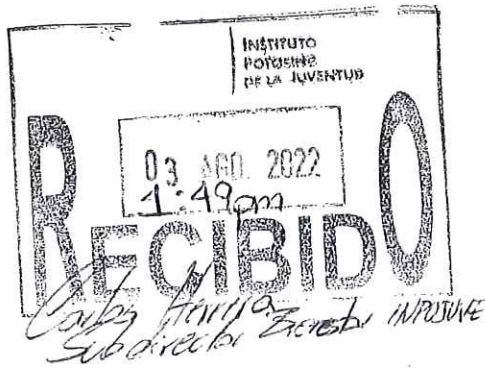 INSTITUTO
POTOSINO
DE LA JUVENTUD
03 AGO. 2022
1:49pm
RECIBIDO
Carlos Herrera
Subdirector Bienestar INPOJUVE